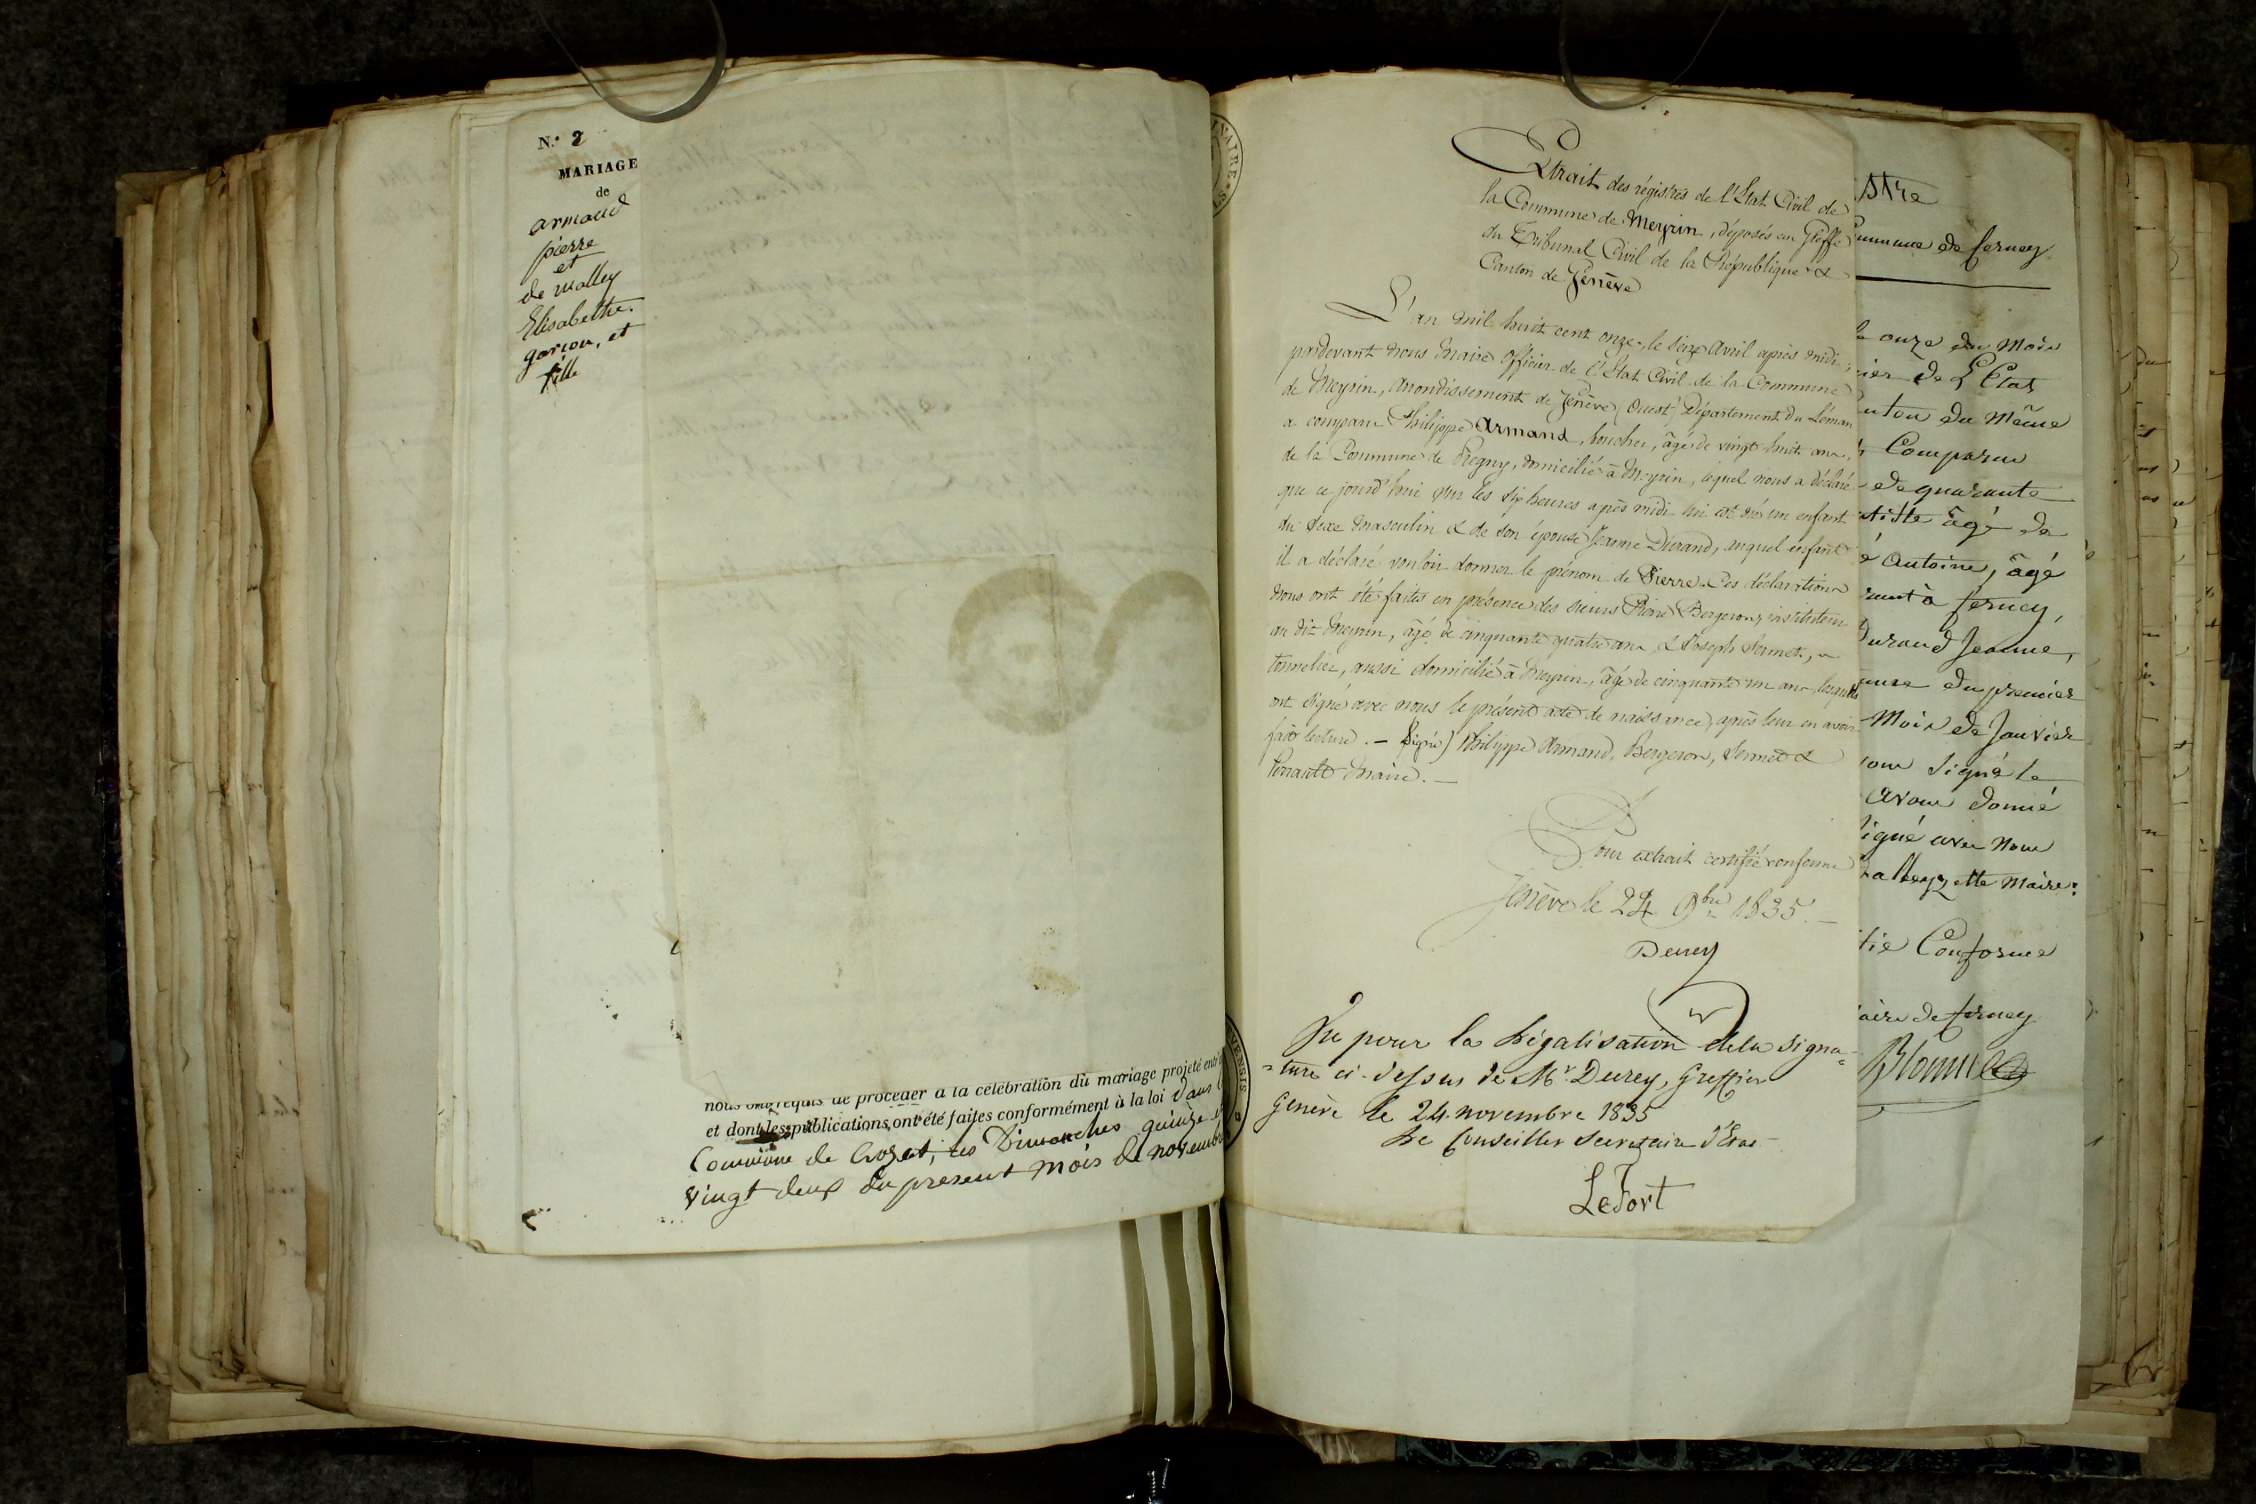 N.° 2
MARIAGE
de
armand
pierre
et
de walley
Elisabethe.
garcon, et
fille
nous ont requis de procéder à la célébration du mariage projeté entr
et dont les publications ont été faites conformément à la loi dans
Commune de Crozet, les Dimanches quinze et
vingt deux du present mois de novembre
Extrait des régistres de l'Etat Civil de
la Commune de Meyrin, déposés au Greffe
du Tribunal Civil de la République &
Canton de Genève
L'an mil huit cent onze, le seize Avril après midi,
pardevant nous Maire Officier de l'Etat Civil de la Commune
de Meyrin, Arrondissement de Genève (Ouest) Département du Léman
a comparu Philippe Armand, boucher, âgé de vingt huit ans,
de la Commune de Pregny, domicilié à Meyrin, lequel nous a déclaré
que ce jourd'hui sur les six heures après midi lui est né un enfant
du sexe masculin & de son épouse Jeanne Durand, auquel enfant
il a déclaré vouloir donner le prénom de Pierre. Ces déclarations
nous ont été faites en présence des sieurs Pierre Bergeron, instituteur
au dit Meyrin, âgé de cinquante quatre ans & Joseph Sermet,
tonnelier, aussi domicilié à Meyrin, âgé de cinquante un ans, lesquels
ont signé avec nous le présent acte de naissance, après leur en avoir
fait lecture. — Signé) Philippe Armand, Bergeron, Sermet &
Perrault Maire. —
Pour extrait certifié conforme
Genève le 24 9bre 1835. —
Durey
Vu pour la Légalisation de la signa-
-ture ci-dessus de Mr Durey, Greffier
Genève le 24 novembre 1835
Le Conseiller Secretaire d'Etat
LeFort
stre
Commune de ferney
onze du Mois
cier de L'Etat
anton du Même
Comparu
de quarante
atiste âgé de
é Antoine, âgé
rant à ferney,
Durand Jeanne,
eure du premier
Mois de Janvier
ont signé le
avoir donné
signé avec nous
ette maire:
tié Conforme
aire de ferney